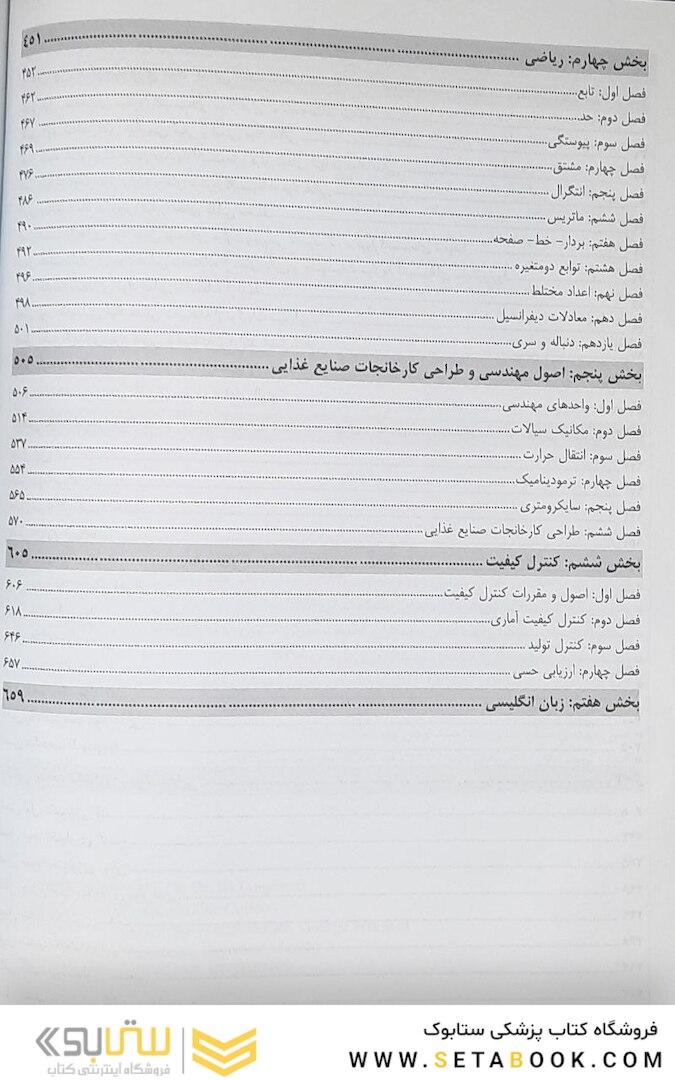 بخش چهارم: ریاضی ........ ٤٥١
فصل اول: تابع ........ ۴۵۲
فصل دوم: حد ........ ۴۶۲
فصل سوم: پیوستگی ........ ۴۶۷
فصل چهارم: مشتق ........ ۴۶۹
فصل پنجم: انتگرال ........ ۴۷۶
فصل ششم: ماتریس ........ ۴۸۶
فصل هفتم: بردار- خط- صفحه ........ ۴۹۰
فصل هشتم: توابع دومتغیره ........ ۴۹۲
فصل نهم: اعداد مختلط ........ ۴۹۶
فصل دهم: معادلات دیفرانسیل ........ ۴۹۸
فصل یازدهم: دنباله و سری ........ ۵۰۱
بخش پنجم: اصول مهندسی و طراحی کارخانجات صنایع غذایی ........ ٥٠٥
فصل اول: واحدهای مهندسی ........ ۵۰۶
فصل دوم: مکانیک سیالات ........ ۵۱۴
فصل سوم: انتقال حرارت ........ ۵۳۷
فصل چهارم: ترمودینامیک ........ ۵۵۴
فصل پنجم: سایکرومتری ........ ۵۶۵
فصل ششم: طراحی کارخانجات صنایع غذایی ........ ۵۷۰
بخش ششم: کنترل کیفیت ........ ٦٠٥
فصل اول: اصول و مقررات کنترل کیفیت ........ ۶۰۶
فصل دوم: کنترل کیفیت آماری ........ ۶۱۸
فصل سوم: کنترل تولید ........ ۶۴۶
فصل چهارم: ارزیابی حسی ........ ۶۵۷
بخش هفتم: زبان انگلیسی ........ ٦٥٩
فروشگاه کتاب پزشکی ستابوک
WWW.SETABOOK.COM
ستابوک
فروشگاه اینترنتی کتاب